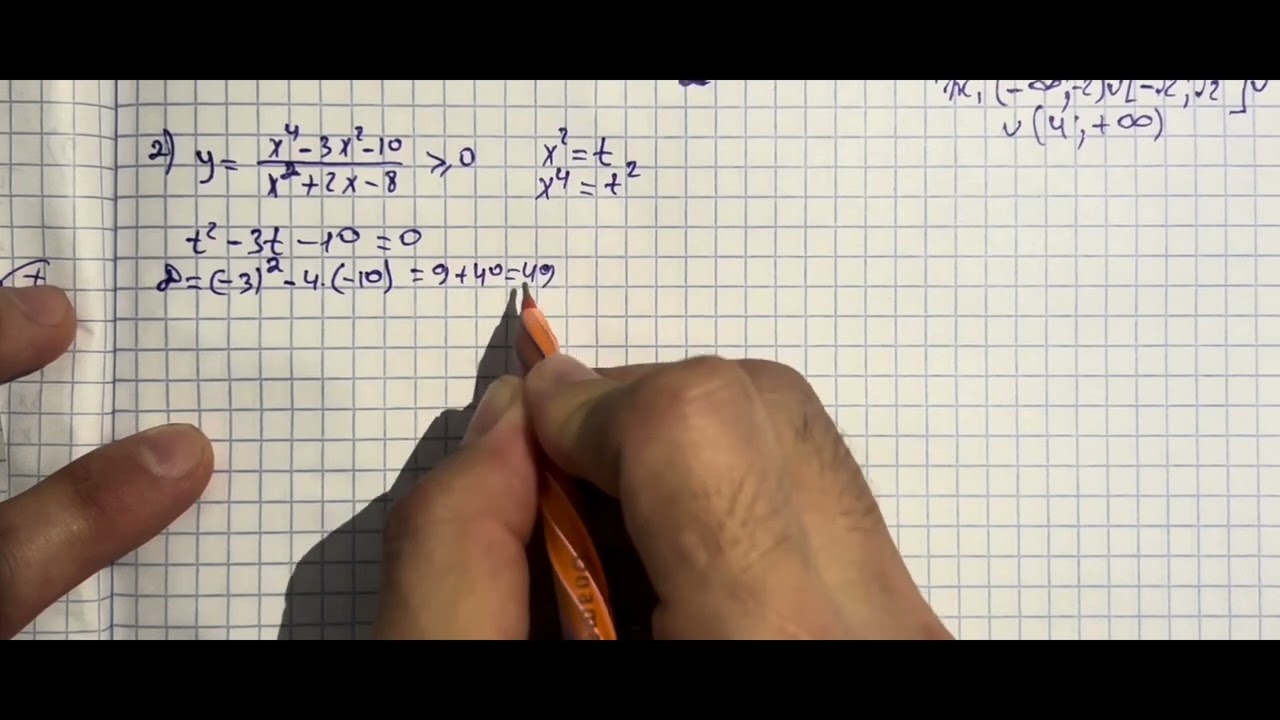 (-∞;-2)∪[-√2;√2]∪
∪(4;+∞)
2) y = (x⁴-3x²-10)/(x²+2x-8) ⩾ 0
x² = t
x⁴ = t²
t² - 3t - 10 = 0
D = (-3)² - 4·(-10) = 9 + 40 = 49